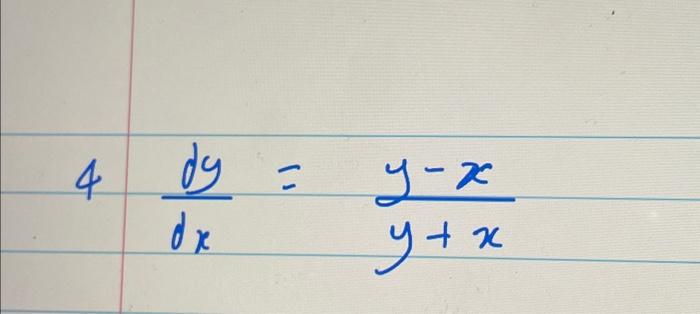 4 dy/dx = y-x/y+x